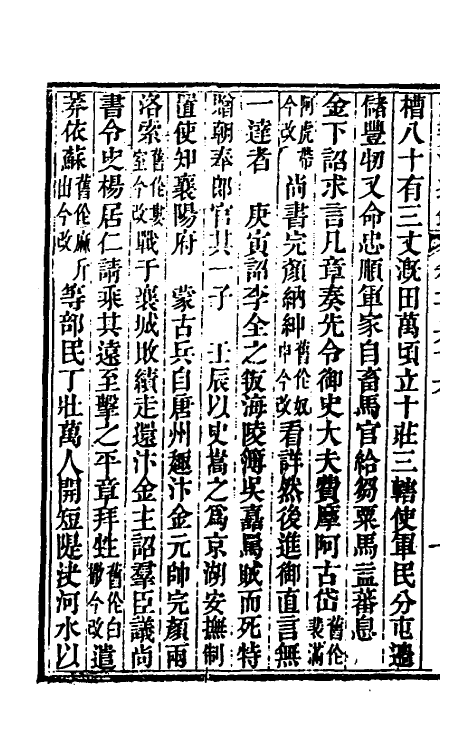 槽八十有三丈漑田萬頃立十莊三轄使軍民分屯邊
儲豐牣又命忠順軍家自畜馬官給芻粟馬益蕃息
金下詔求言凡章奏先令御史大夫費摩阿古岱舊倫裴滿
阿虎帶今改尚書完顏納紳舊倫奴申今改看詳然後進御直言無
一達者　庚寅詔李全之叛海陵簿吳嘉罵賊而死特
贈朝奉郎官其一子　壬辰以史嵩之爲京湖安撫制
置使知襄陽府　蒙古兵自唐州趣汴金元帥完顏兩
洛索舊倫婁室今改戰于襄城敗績走還汴金主詔羣臣議尚
書令史楊居仁請乘其遠至擊之平章拜甡舊倫白撒今改遣
莽依蘇舊倫麻斤出今改等部民丁壯萬人開短隄決河水以